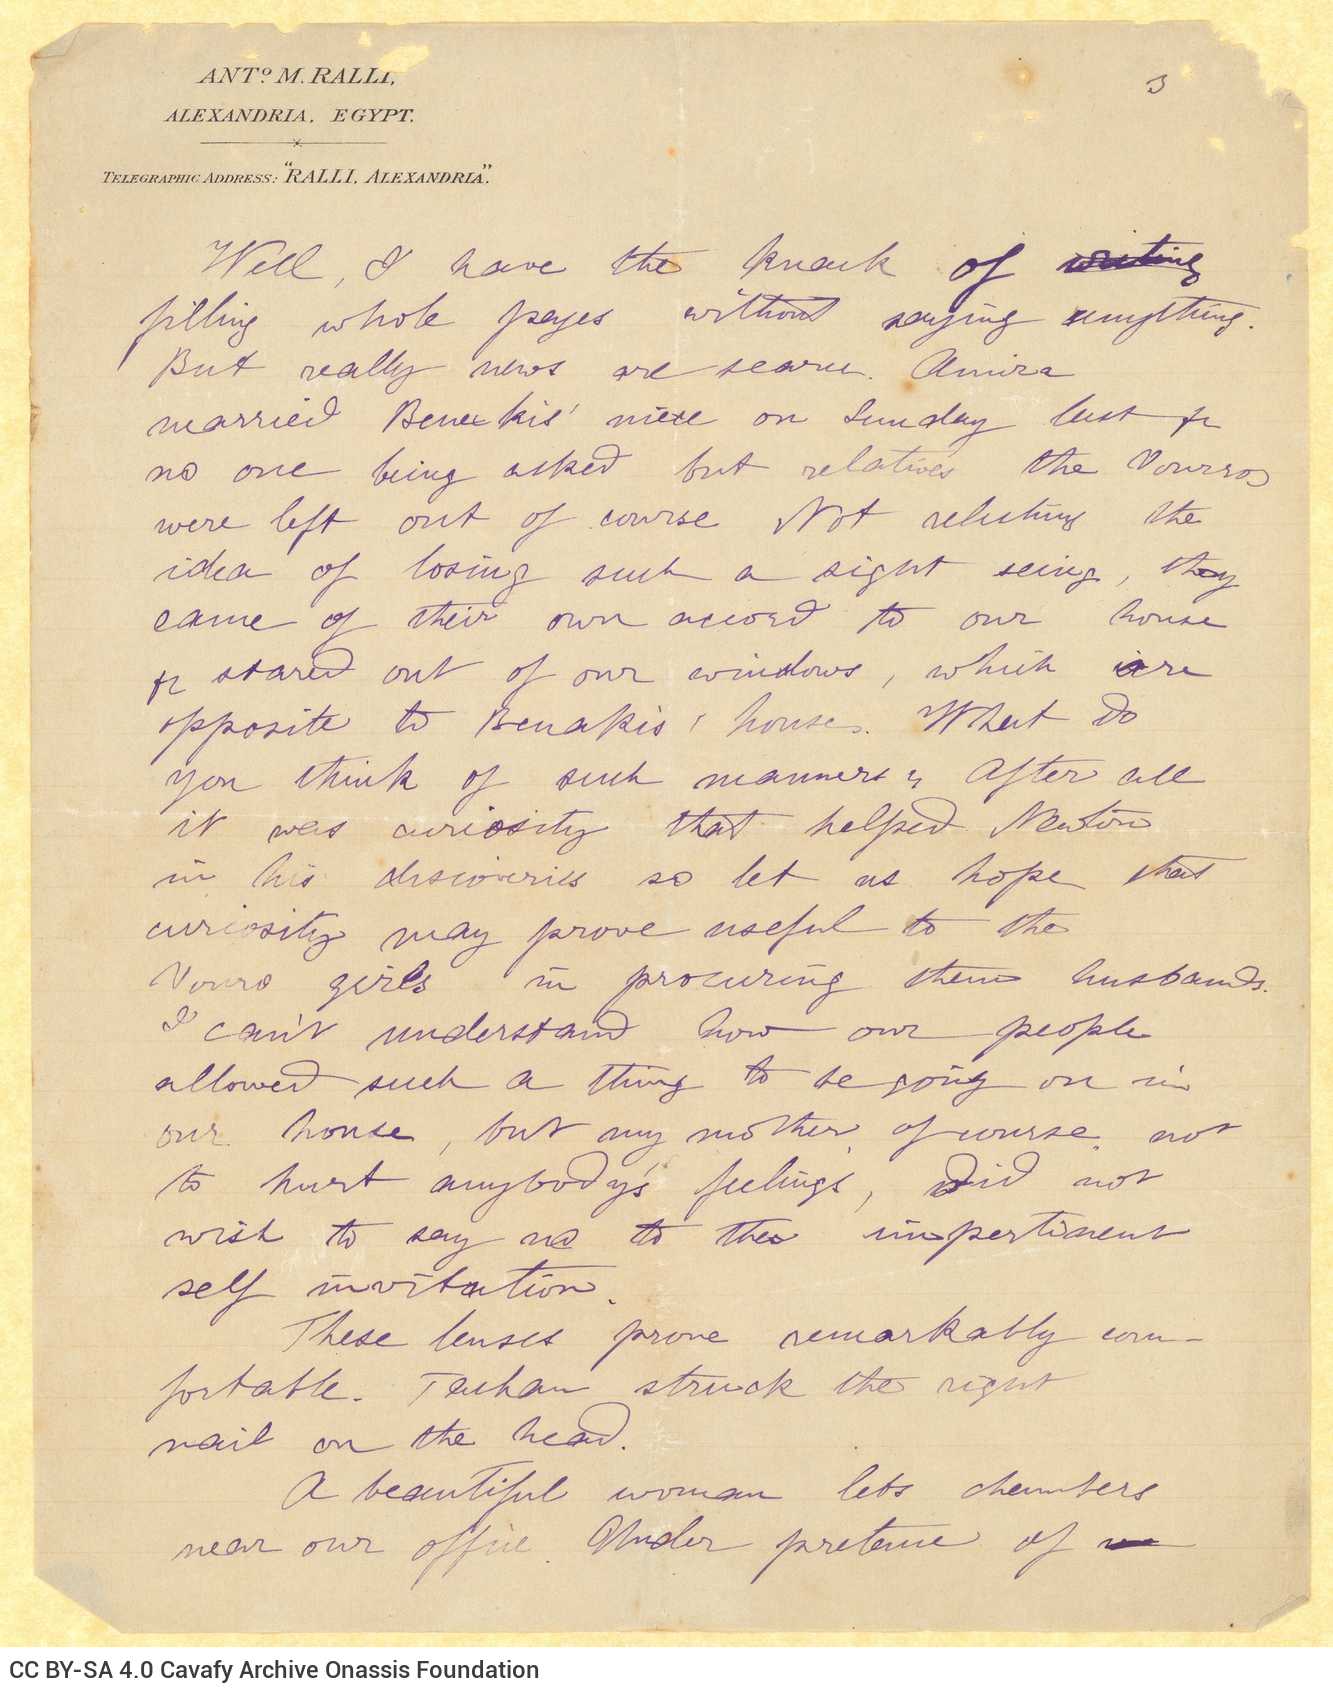 ANTº M. RALLI,
ALEXANDRIA. EGYPT.
TELEGRAPHIC ADDRESS: "RALLI, ALEXANDRIA".
3
Well, I have the knack of writing
filling whole pages without saying anything.
But really news are scarce. Amira
married Benakis' niece on Sunday last &
no one being asked but relatives the Vouros
were left out of course Not relishing the
idea of losing such a sight seing, they
came of their own accord to our house
& stared out of our windows, which are
opposite to Benakis' house. What do
you think of such manners? After all
it was curiosity that helped Newton
in his discoveries so let us hope that
curiosity may prove useful to the
Vouro girls in procuring them husbands.
I can't understand how our people
allowed such a thing to be going on in
our house, but my mother, of course, not
to hurt anybody's feelings, did not
wish to say no to the impertinent
self invitation.
These lenses prove remarkably com-
fortable. struck the right
nail on the head.
A beautiful woman lets chambers
near our office. Under pretence of
CC BY-SA 4.0 Cavafy Archive Onassis Foundation